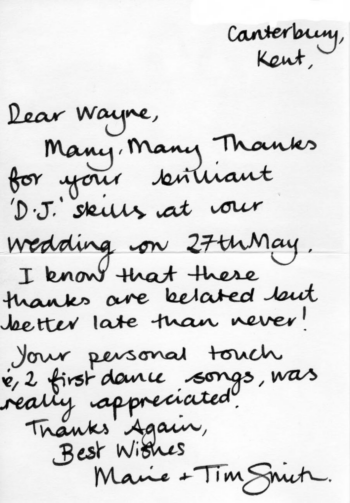 Canterbury,
Kent,
Dear Wayne,
Many, Many Thanks
for your brilliant
'D.J.' skills at our
wedding on 27th May.
I know that these
thanks are belated but
better late than never!
Your personal touch
ie, 2 first dance songs, was
really appreciated.
Thanks Again,
Best Wishes
Marie + Tim Smith.